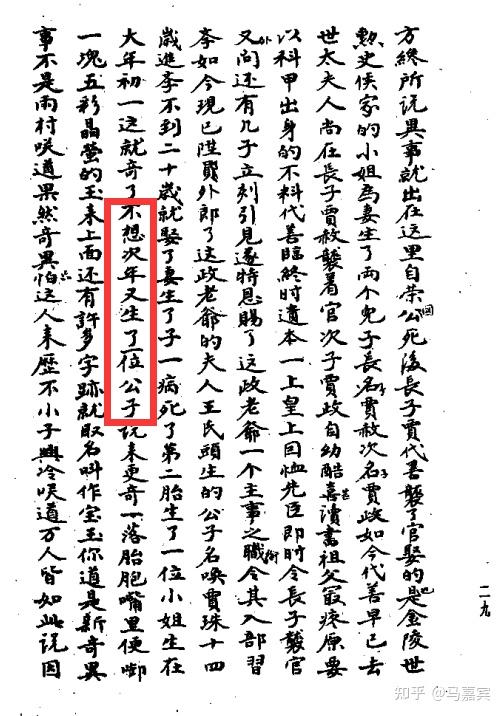 方終所说異事就出在这里自荣國公死後長子賈代善襲了官娶的是金陵世
勲史侯家的小姐為妻生了兩个兒子長子名賈赦次子名賈政如今代善早已去
世太夫人尚在長子賈赦襲着官次子賈政自幼酷喜讀書祖父最疼原要
以科甲出身的不料代善臨終時遺本一上皇上因恤先臣即時令長子襲官
外又問还有几子立刻引見遂特恩賜了这政老爺一个主事之職銜令其入部習
斈如今現已陞員外郎了这政老爺的夫人王氏頭生的公子名喚賈珠十四
歲進斈不到二十歲就娶了妻生了子一病死了第二胎生了一位小姐生在
大年初一这就奇了不想次年又生了一位公子说来更奇一落胎胞嘴里便啣
一塊五彩晶莹的玉来上面还有許多字跡就取名叫作宝玉你道是新奇異
事不是雨村咲道果然奇異怕这人来歷不小子興冷咲道万人皆如此说因
二九
知乎 @马嘉宾